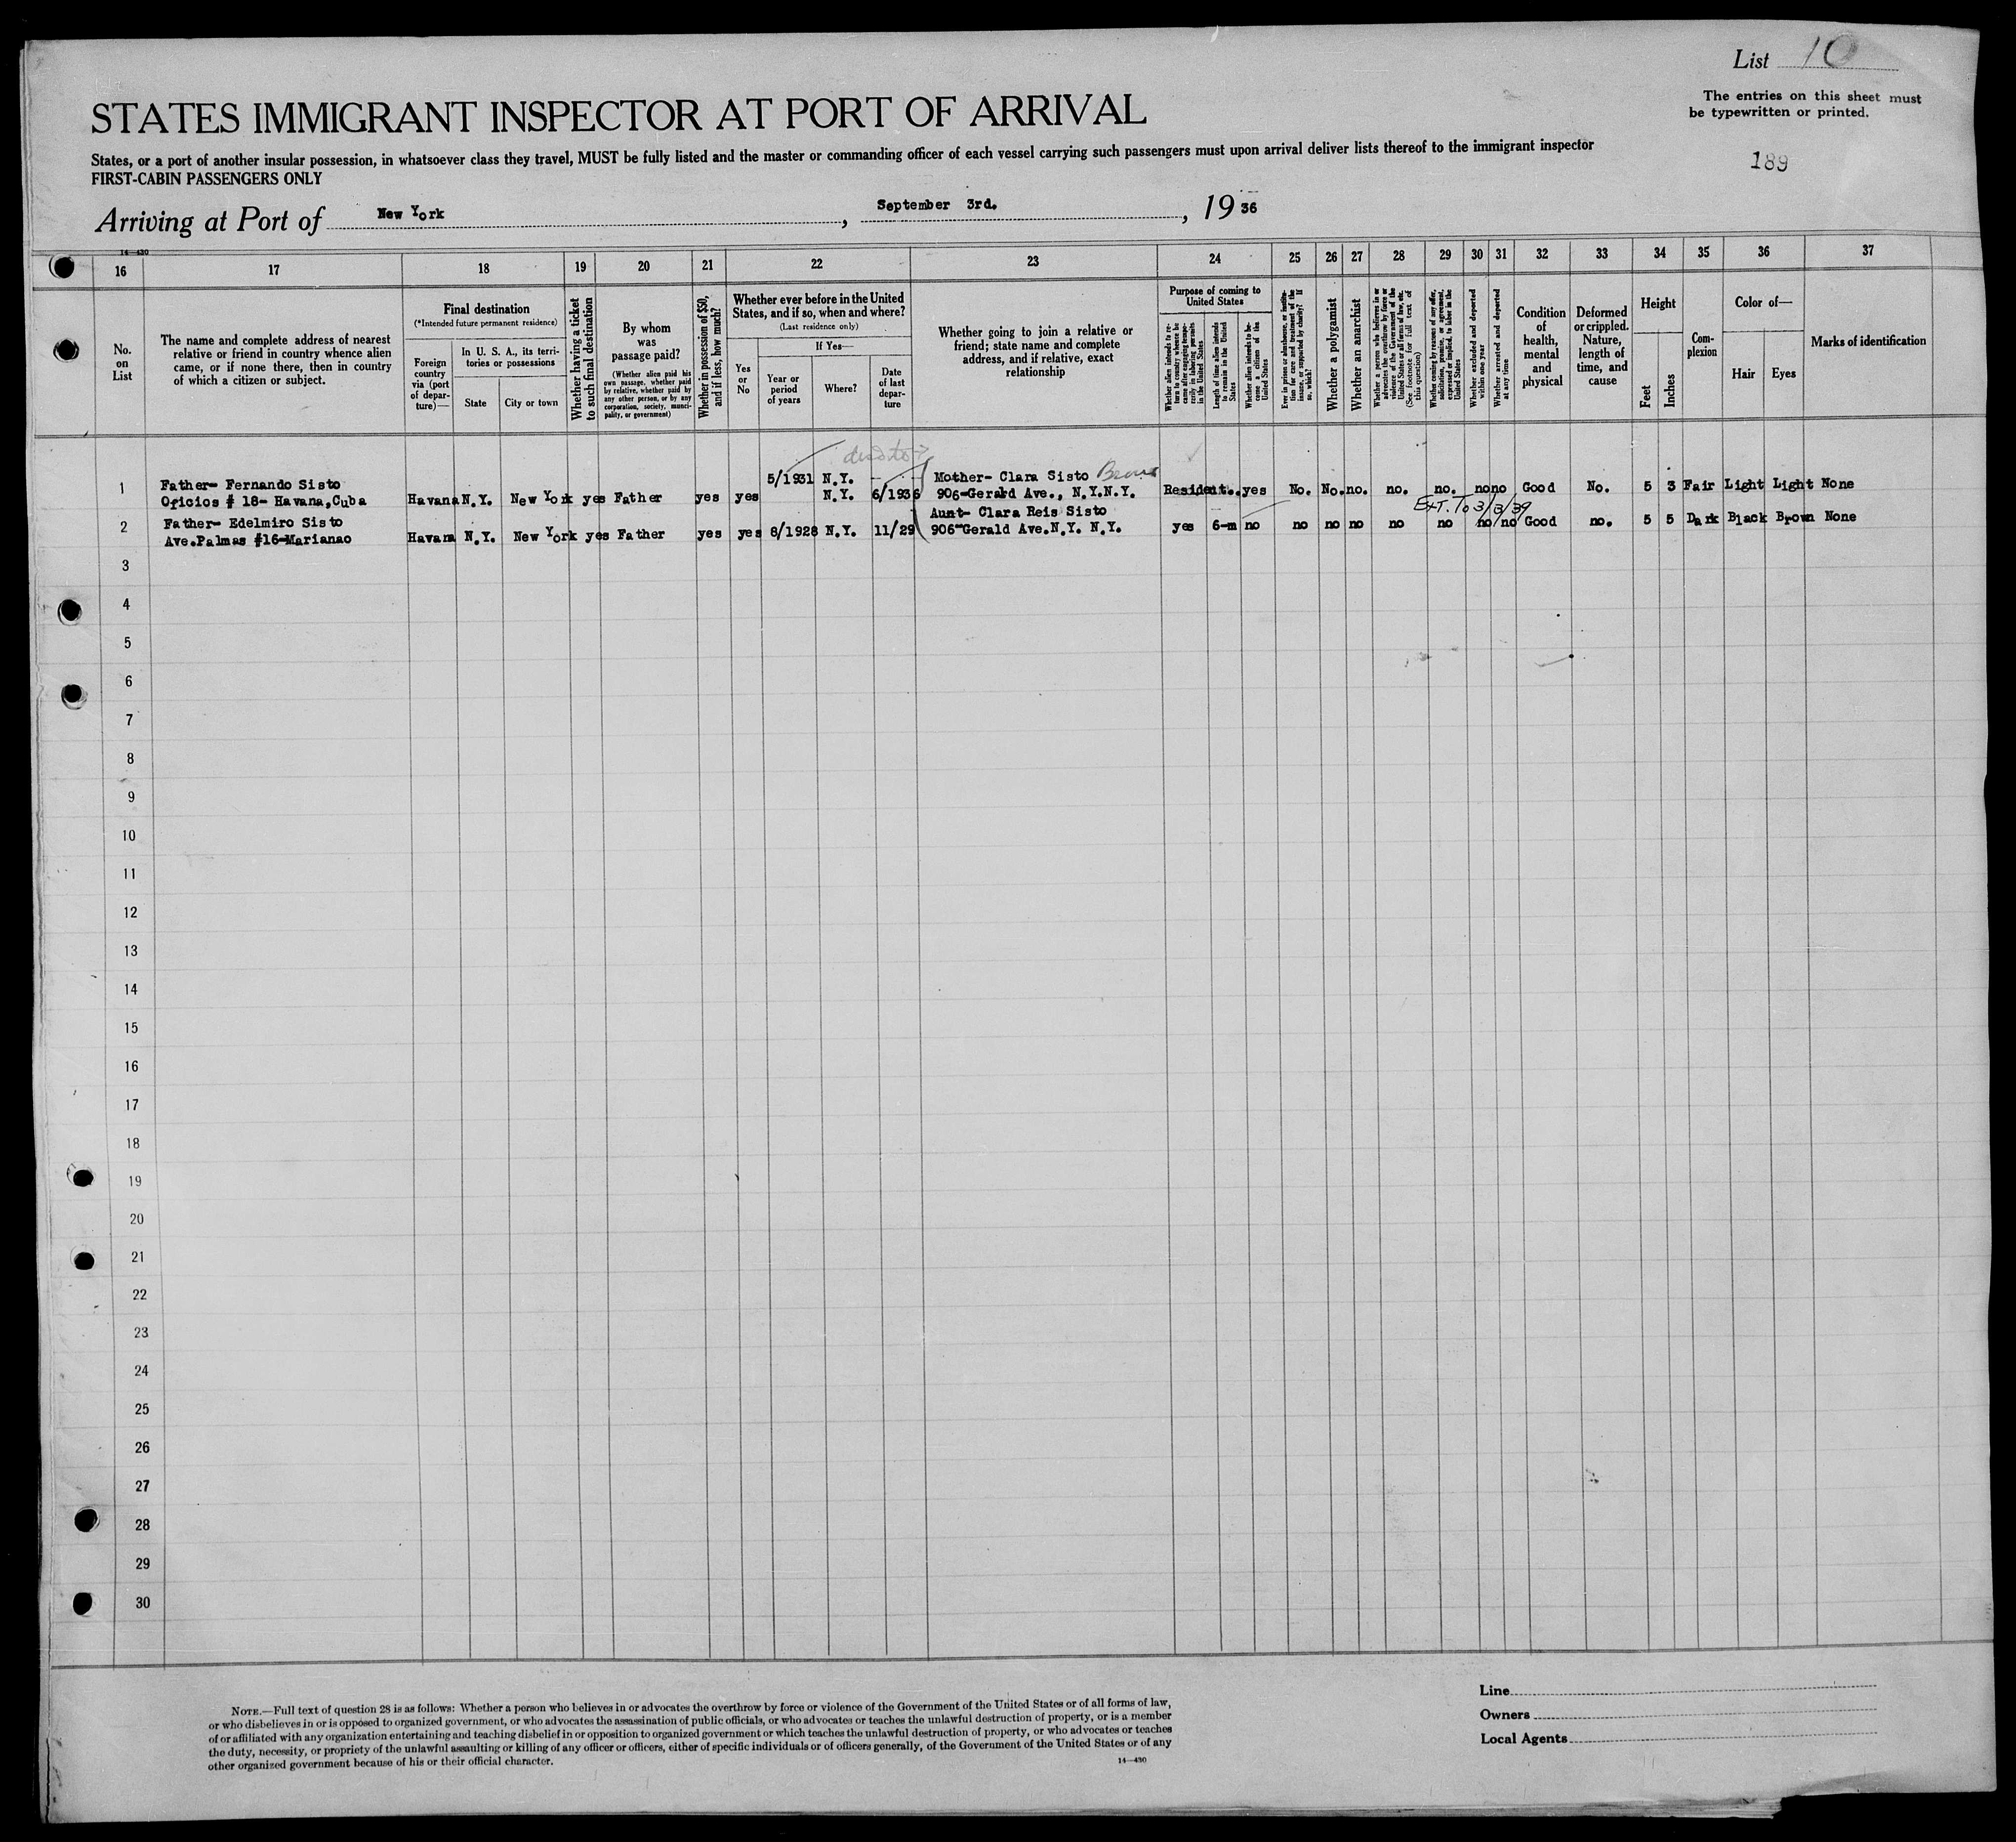 List 10
The entries on this sheet must
be typewritten or printed.
189
STATES IMMIGRANT INSPECTOR AT PORT OF ARRIVAL
States, or a port of another insular possession, in whatsoever class they travel, MUST be fully listed and the master or commanding officer of each vessel carrying such passengers must upon arrival deliver lists thereof to the immigrant inspector
FIRST-CABIN PASSENGERS ONLY
Arriving at Port of New York, September 3rd., 1936
14—430
16 17 18 19 20 21 22 23 24 25 26 27 28 29 30 31 32 33 34 35 36 37
No.
on
List
The name and complete address of nearest
relative or friend in country whence alien
came, or if none there, then in country
of which a citizen or subject.
Final destination
(*Intended future permanent residence)
Foreign
country
via (port
of depar-
ture)—
In U. S. A., its terri-
tories or possessions
State
City or town
Whether having a ticket
to such final destination
By whom
was
passage paid?
(Whether alien paid his
own passage, whether paid
by relative, whether paid by
any other person, or by any
corporation, society, munici-
pality, or government)
Whether in possession of $50,
and if less, how much?
Whether ever before in the United
States, and if so, when and where?
(Last residence only)
Yes
or
No
If Yes—
Year or
period
of years
Where?
Date
of last
depar-
ture
Whether going to join a relative or
friend; state name and complete
address, and if relative, exact
relationship
Purpose of coming to
United States
Whether alien intends to re-
turn to country whence he
came after engaging tempo-
rarily in laboring pursuits
in the United States
Length of time alien intends
to remain in the United
States
Whether alien intends to be-
come a citizen of the
United States
Ever in prison or almshouse, or institu-
tion for care and treatment of the
insane, or supported by charity? If
so, which?
Whether a polygamist
Whether an anarchist
Whether a person who believes in or
advocates the overthrow by force or
violence of the Government of the
United States or all forms of law, etc.
(See footnote for full text of
this question)
Whether coming by reasons of any offer,
solicitation, promise, or agreement,
expressed or implied, to labor in the
United States
Whether excluded and deported
within one year
Whether arrested and deported
at any time
Condition
of
health,
mental
and
physical
Deformed
or crippled.
Nature,
length of
time, and
cause
Height
Feet
Inches
Com-
plexion
Color of—
Hair
Eyes
Marks of identification
5/1931 N.Y. Mother- Clara Sisto
1 Father- Fernando Sisto
Oficios # 18- Havana,Cuba Havana N.Y. New York yes Father yes yes N.Y. 6/1936 906-Gerard Ave., N.Y.N.Y. Resident..yes No. No. no. no. no. no no Good No. 5 3 Fair Light Light None
EXT. TO 3/3/39
2 Father- Edelmiro Sisto Aunt- Clara Reis Sisto
Ave.Palmas #16-Marianao Havana N.Y. New York yes Father yes yes 8/1928 N.Y. 11/29 906-Gerald Ave.N.Y. N.Y. yes 6-m no no no no no no no no Good no. 5 5 Dark Black Brown None
3
4
5
6
7
8
9
10
11
12
13
14
15
16
17
18
19
20
21
22
23
24
25
26
27
28
29
30
NOTE.—Full text of question 28 is as follows: Whether a person who believes in or advocates the overthrow by force or violence of the Government of the United States or of all forms of law,
or who disbelieves in or is opposed to organized government, or who advocates the assassination of public officials, or who advocates or teaches the unlawful destruction of property, or is a member
of or affiliated with any organization entertaining and teaching disbelief in or opposition to organized government or which teaches the unlawful destruction of property, or who advocates or teaches
the duty, necessity, or propriety of the unlawful assaulting or killing of any officer or officers, either of specific individuals or of officers generally, of the Government of the United States or of any
other organized government because of his or their official character.
14—430
Line
Owners
Local Agents